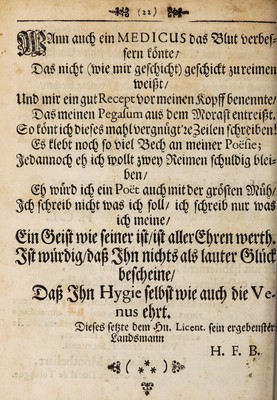 (22)
Wann auch ein MEDICUS das Blut verbes-
sern könte/
Das nicht (wie mir geschicht) geschickt zu reimen
weißt/
Und mir ein gut Recept vor meinen Kopff benennte/
Das meinen Pegasum aus dem Morast entreißt.
So könt ich dieses mahl vergnügt're Zeilen schreiben!
Es klebt noch so viel Bech an meiner Poësie;
Jedannoch eh ich wollt zwey Reimen schuldig blei-
ben/
Eh würd ich ein Poët auch mit der grösten Müh/
Ich schreib nicht was ich soll / ich schreib nur was
ich meine/
Ein Geist wie seiner ist/ ist aller Ehren werth.
Ist würdig/ daß Ihn nichts als lauter Glück
bescheine/
Daß Ihn Hygie selbst wie auch die Ve-
nus ehrt.
Dieses setzte dem Hn. Licent. sein ergebenster
Landsmann
H. F. B.